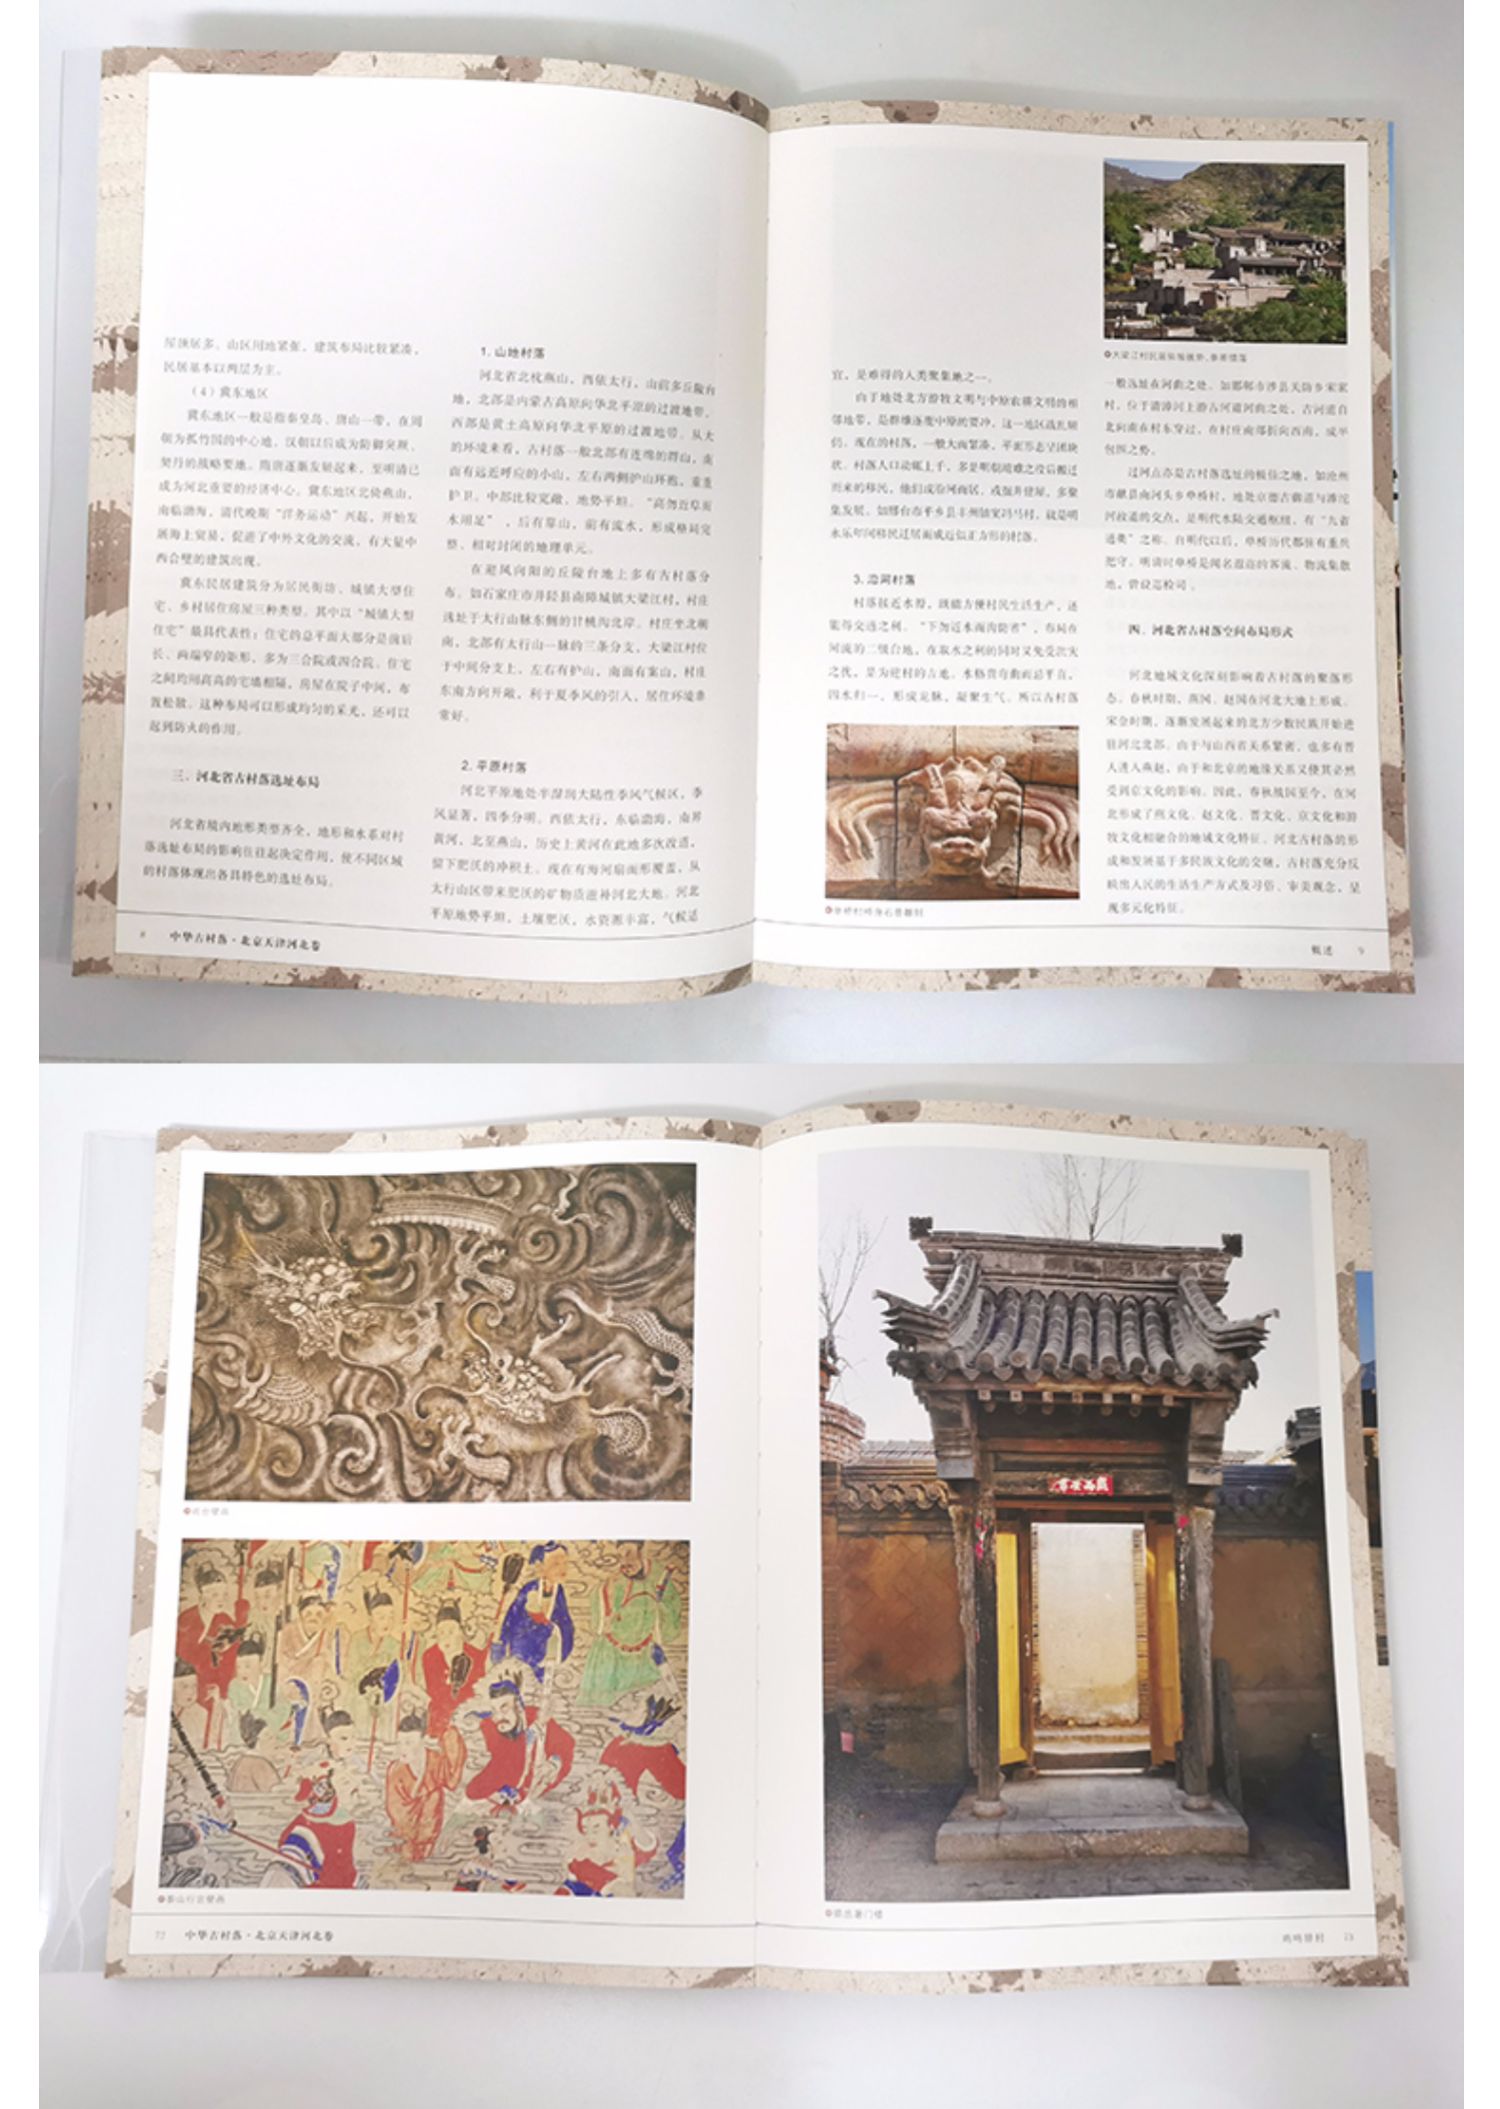 屋顶居多。山区用地紧张，建筑布局比较紧凑，
民居基本以两层为主。
（4）冀东地区
冀东地区一般是指秦皇岛、唐山一带，在周
朝为孤竹国的中心地，汉朝以后成为防御突厥、
契丹的战略要地。隋唐逐渐发展起来，至明清已
成为河北重要的经济中心。冀东地区北倚燕山，
南临渤海，清代晚期“洋务运动”兴起，开始发
展海上贸易，促进了中外文化的交流，有大量中
西合璧的建筑出现。
冀东民居建筑分为居民街坊、城镇大型住
宅、乡村居住房屋三种类型。其中以“城镇大型
住宅”最具代表性：住宅的总平面大部分是前后
长、两端窄的矩形，多为三合院或四合院。住宅
之间均用高高的宅墙相隔，房屋在院子中间，布
置松散。这种布局可以形成均匀的采光，还可以
起到防火的作用。
三、河北省古村落选址布局
河北省境内地形类型齐全，地形和水系对村
落选址布局的影响往往起决定作用，使不同区域
的村落体现出各具特色的选址布局。
1. 山地村落
河北省北枕燕山，西依太行，山前多丘陵台
地，北部是内蒙古高原向华北平原的过渡地带，
西部是黄土高原向华北平原的过渡地带。从大
的环境来看，古村落一般北部有连绵的群山，南
面有远近呼应的小山，左右两侧护山环抱，重重
护卫。中部比较宽敞、地势平坦。“高勿近阜而
水用足”，后有靠山，前有流水，形成格局完
整、相对封闭的地理单元。
在避风向阳的丘陵台地上多有古村落分
布。如石家庄市井陉县南障城镇大梁江村，村庄
选址于太行山脉东侧的甘桃沟北岸。村庄坐北朝
南，北部有太行山一脉的三条分支，大梁江村位
于中间分支上，左右有护山，南面有案山，村庄
东南方向开敞，利于夏季风的引入，居住环境非
常好。
2. 平原村落
河北平原地处半湿润大陆性季风气候区，季
风显著，四季分明。西依太行，东临渤海，南界
黄河，北至燕山，历史上黄河在此地多次改道，
留下肥沃的冲积土。现在有海河扇面形覆盖，从
太行山区带来肥沃的矿物质滋补河北大地。河北
平原地势平坦，土壤肥沃，水资源丰富，气候适
8 中华古村落·北京天津河北卷
宜，是难得的人类聚集地之一。
由于地处北方游牧文明与中原农耕文明的相
邻地带，是群雄逐鹿中原的要冲，这一地区战乱频
仍。现在的村落，一般大而紧凑，平面形态呈团块
状。村落人口动辄上千，多是明朝靖难之役后搬迁
而来的移民，他们或沿河而居，或凿井建屋，多聚
集发展。如邢台市平乡县丰州镇窦冯马村，就是明
永乐年间移民迁居而成近似正方形的村落。
3. 沿河村落
村落接近水得，既能方便村民生活生产，还
能得交通之利。“下勿近水而沟防省”，布局在
河流的二级台地，在取水之利的同时又免受洪灾
之忧，是为建村的吉地。水格贵弯曲而忌平直，
四水归一，形成龙脉，凝聚生气。所以古村落
单桥村桥身石兽雕刻
大梁江村民居依饭就势、参差错落
一般选址在河曲之处。如邯郸市涉县关防乡宋家
村，位于清漳河上游古河道河曲之处，古河道自
北向南在村东穿过，在村庄南部折向西南，成半
包围之势。
过河点亦是古村落选址的极佳之地，如沧州
市献县南河头乡单桥村，地处京德古御道与滹沱
河故道的交点，是明代水陆交通枢纽，有“九省
通衢”之称。自明代以后，单桥历代都驻有重兵
把守。明清时单桥是闻名遐迩的客流、物流集散
地，曾设巡检司。
四、河北省古村落空间布局形式
河北地域文化深刻影响着古村落的聚落形
态。春秋时期，燕国、赵国在河北大地上形成。
宋金时期，逐渐发展起来的北方少数民族开始进
驻河北北部。由于与山西省关系紧密，也多有晋
人进入燕赵。由于和北京的地缘关系又使其必然
受到京文化的影响。因此，春秋战国至今，在河
北形成了燕文化、赵文化、晋文化、京文化和游
牧文化相融合的地域文化特征。河北古村落的形
成和发展基于多民族文化的交融，古村落充分反
映出人民的生活生产方式及习俗、审美观念，呈
现多元化特征。
概述 9
戏台壁画
泰山行宫壁画
72 中华古村落·北京天津河北卷
凤西安常
总署门楼
鸡鸣驿村 73